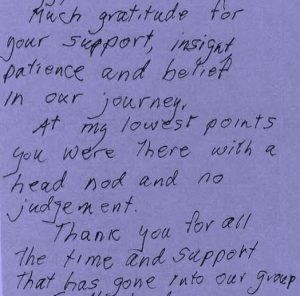 Much gratitude for
your support, insight
patience and belief
in our journey.
At my lowest points
you were there with a
head nod and no
judgement.
Thank you for all
the time and support
that has gone into our group